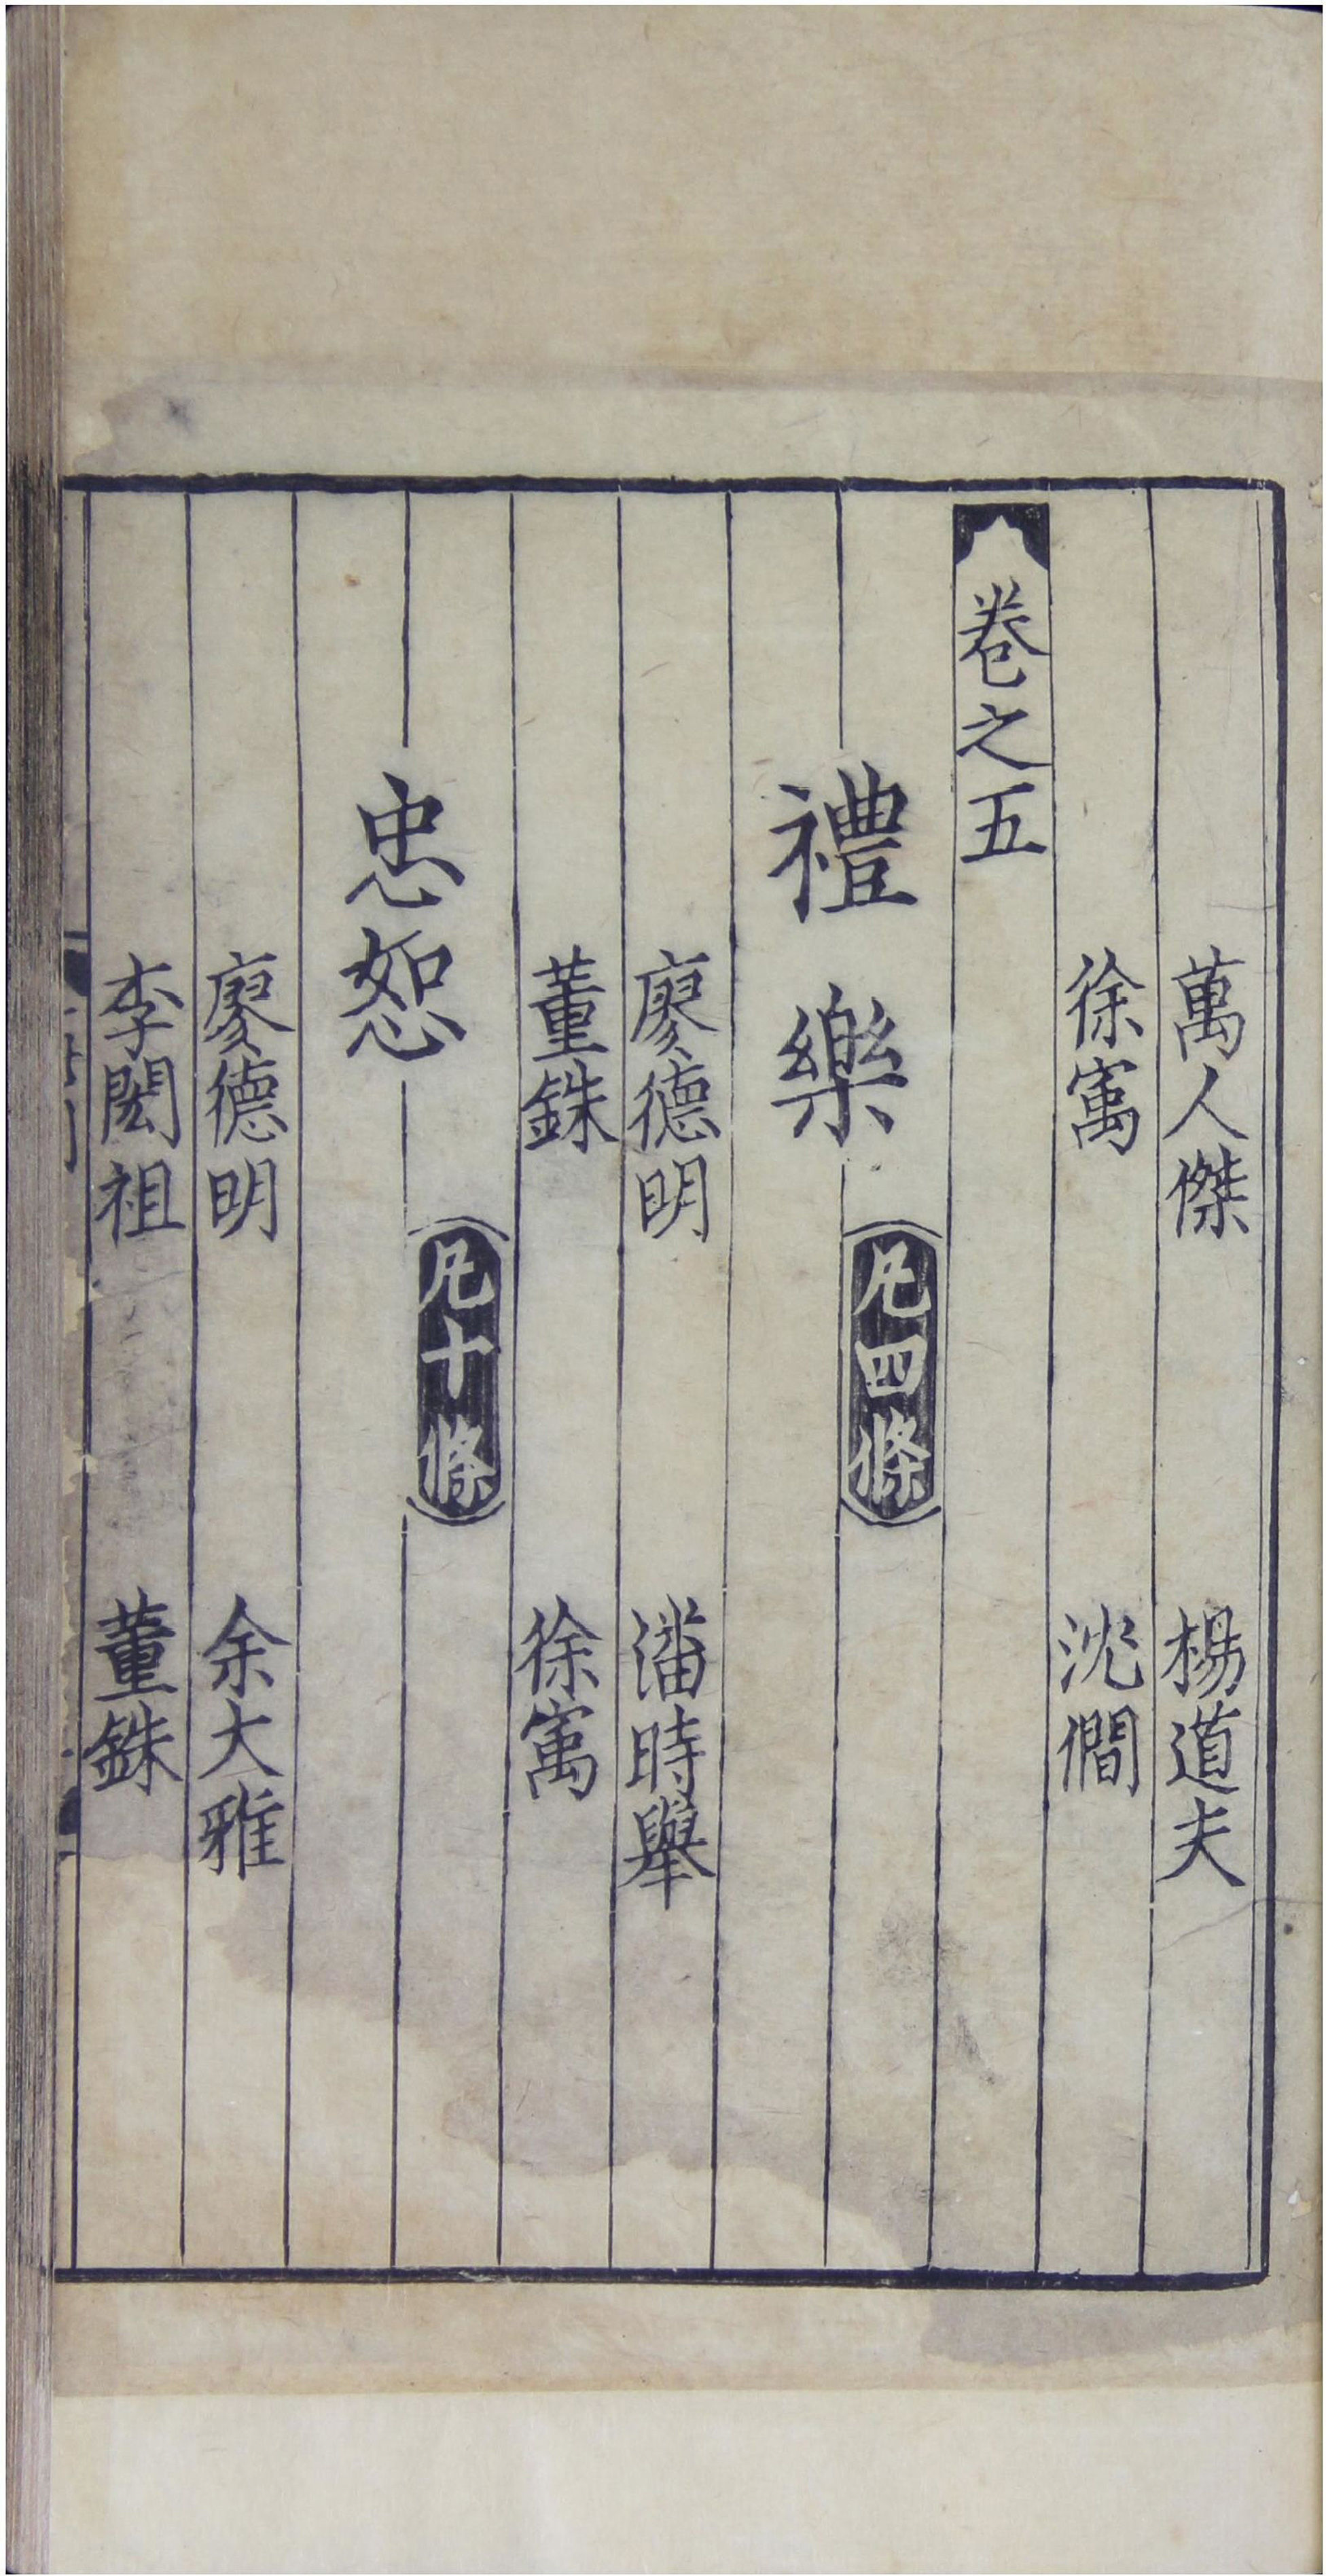 萬人傑 楊道夫
徐㝢 沈僩
卷之五
禮樂 凡四條
廖德明 潘時舉
董銖 徐㝢
忠恕 凡十條
廖德明 余大雅
李閎祖 董銖